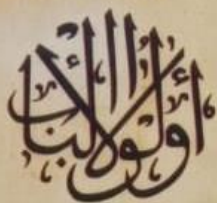 أولو الألباب